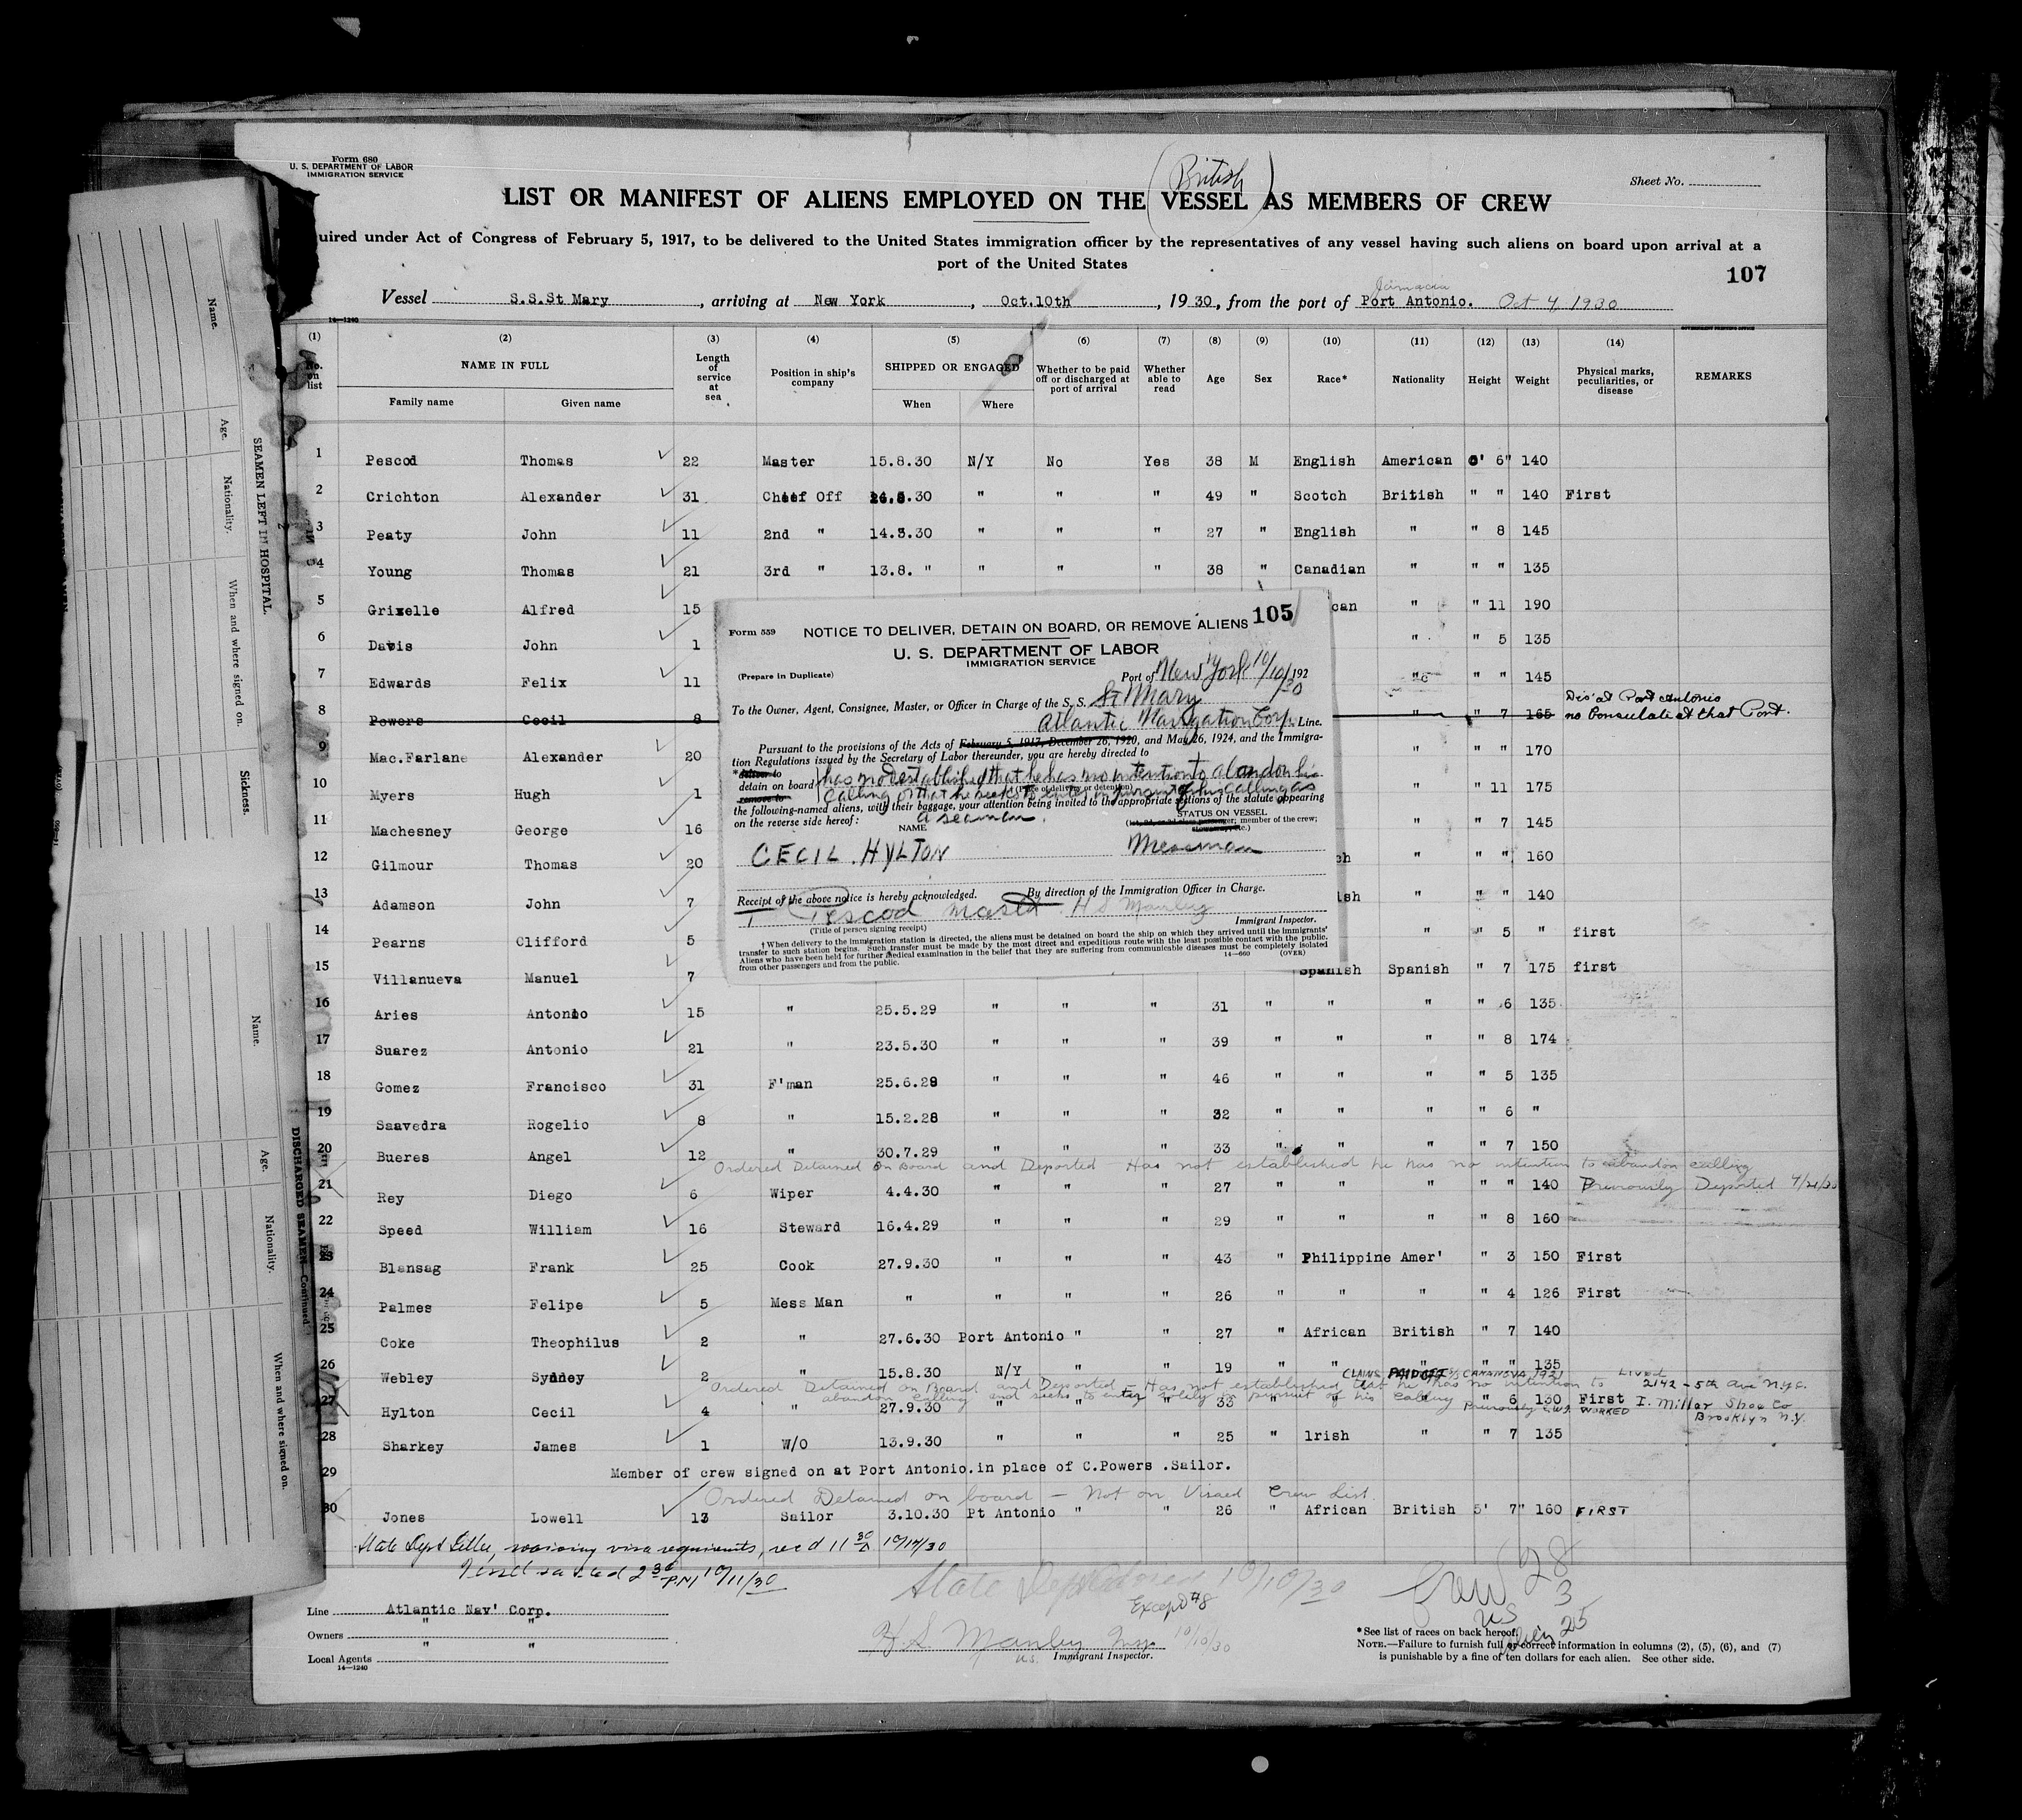 Form 680
U. S. DEPARTMENT OF LABOR
IMMIGRATION SERVICE
Sheet No.
(British)
LIST OR MANIFEST OF ALIENS EMPLOYED ON THE VESSEL AS MEMBERS OF CREW
uired under Act of Congress of February 5, 1917, to be delivered to the United States immigration officer by the representatives of any vessel having such aliens on board upon arrival at a
port of the United States
107
Jamaica
Vessel S.S.St Mary, arriving at New York, Oct.10th, 1930, from the port of Port Antonio. Oct 4, 1930
14—1240
(1) (2) (3) (4) (5) (6) (7) (8) (9) (10) (11) (12) (13) (14)
No. on list NAME IN FULL Family name Given name Length of service at sea Position in ship's company SHIPPED OR ENGAGED When Where Whether to be paid off or discharged at port of arrival Whether able to read Age Sex Race* Nationality Height Weight Physical marks, peculiarities, or disease REMARKS
1 Pescod Thomas 22 Master 15.8.30 N/Y No Yes 38 M English American 5' 6" 140
2 Crichton Alexander 31 Chief Off .30 " " " 49 " Scotch British " " 140 First
3 Peaty John 11 2nd " 14.3.30 " " " 27 " English " " 8 145
4 Young Thomas 21 3rd " 13.8. " " " " 38 " Canadian " " " 135
5 Grixelle Alfred 15 can " " 11 190
6 Davis John 1 " " 5 135
7 Edwards Felix 11 " " " 145
8 Powers Cecil 8 " " 7 165 Dis' at Port Antonio
no Consulate at that Port.
9 Mac.Farlane Alexander 20 " " " 170
10 Myers Hugh 1 " " 11 175
11 Machesney George 16 " " 7 145
12 Gilmour Thomas 20 ch " " " 160
13 Adamson John 7 ish " " " 140
14 Pearns Clifford 5 " " 5 " first
15 Villanueva Manuel 7 Spanish Spanish " 7 175 first
Form 559
NOTICE TO DELIVER, DETAIN ON BOARD, OR REMOVE ALIENS 105
U. S. DEPARTMENT OF LABOR
IMMIGRATION SERVICE
(Prepare in Duplicate)
Port of New York 10/10/192
/30
To the Owner, Agent, Consignee, Master, or Officer in Charge of the S. S. St Mary
Atlantic Navigation Corp. Line.
Pursuant to the provisions of the Acts of February 5, 1917, December 26, 1920, and May 26, 1924, and the Immigra-
tion Regulations issued by the Secretary of Labor thereunder, you are hereby directed to
*deliver to
detain on board
remove to
has not established that he has no intention to abandon his
(Place of delivery or detention)
calling or that he seeks to enter in pursuit of his calling as
the following-named aliens, with their baggage, your attention being invited to the appropriate sections of the statute appearing
on the reverse side hereof: a seaman.
NAME
STATUS ON VESSEL
(1st, 2d, or 3d class passenger; member of the crew;
stowaway, etc.)
CECIL. HYLTON Messman
Receipt of the above notice is hereby acknowledged. By direction of the Immigration Officer in Charge.
T Pescod Master H S Manley
(Title of person signing receipt) Immigrant Inspector.
† When delivery to the immigration station is directed, the aliens must be detained on board the ship on which they arrived until the immigrants'
transfer to such station begins. Such transfer must be made by the most direct and expeditious route with the least possible contact with the public.
Aliens who have been held for further medical examination in the belief that they are suffering from communicable diseases must be completely isolated
from other passengers and from the public. 14—660 (OVER)
16 Aries Antonio 15 " 25.5.29 " " " 31 " " " " 6 135
17 Suarez Antonio 21 " 23.5.30 " " " 39 " " " " 8 174
18 Gomez Francisco 31 F'man 25.6.28 " " " 46 " " " " 5 135
19 Saavedra Rogelio 8 " 15.2.28 " " " 32 " " " " 6 "
20 Bueres Angel 12 " 30.7.29 " " " 33 " " " " 7 150
Ordered Detained on Board and Deported - Has not established he has no intention to abandon calling
21 Rey Diego 6 Wiper 4.4.30 " " " 27 " " " " " 140 Previously Deported 4/21/30
22 Speed William 16 Steward 16.4.29 " " " 29 " " " " 8 160
23 Blansag Frank 25 Cook 27.9.30 " " " 43 " Philippine Amer' " 3 150 First
24 Palmes Felipe 5 Mess Man " " " " 26 " " " " 4 126 First
25 Coke Theophilus 2 " 27.6.30 Port Antonio " " 27 " African British " 7 140
26 Webley Sydney 2 " 15.8.30 N/Y " " 19 " " " " " 135
CLAIMS PAID OFF S/S CANANOVA 1921 LIVED
Ordered Detained on Board and Deported - Has not established that he has no intention to 2142 - 5th Ave N.Y.C.
abandon calling and seeks to enter solely in pursuit of his calling
27 Hylton Cecil 4 " 27.9.30 " " " 33 " " " " 6 130 First I. Miller Shoe Co
WORKED Brooklyn N.Y.
28 Sharkey James 1 W/O 13.9.30 " " " 25 " Irish " " 7 135
29 Member of crew signed on at Port Antonio.in place of C.Powers .Sailor.
Ordered Detained on board - Not on Visaed Crew List.
30 Jones Lowell 13 Sailor 3.10.30 Pt Antonio " " 26 " African British 5' 7" 160 FIRST
State Dept Letter, waiving visa requirements, rec'd 11 30/A 10/14/30
Vessel sailed 2 30 PM 10/11/30
10/10/30
Except #8
Crew 28
3
US
Alien 25
Line Atlantic Nav' Corp.
Owners " "
Local Agents " "
14—1240
H.S Manley Insp. 10/10/30
U.S. Immigrant Inspector.
*See list of races on back hereof.
NOTE.—Failure to furnish full or correct information in columns (2), (5), (6), and (7)
is punishable by a fine of ten dollars for each alien. See other side.
SEAMEN LEFT IN HOSPITAL.
Name. Age. Nationality. When and where signed on. Sickness.
DISCHARGED SEAMEN—Continued
Name. Age. Nationality. When and where signed on.